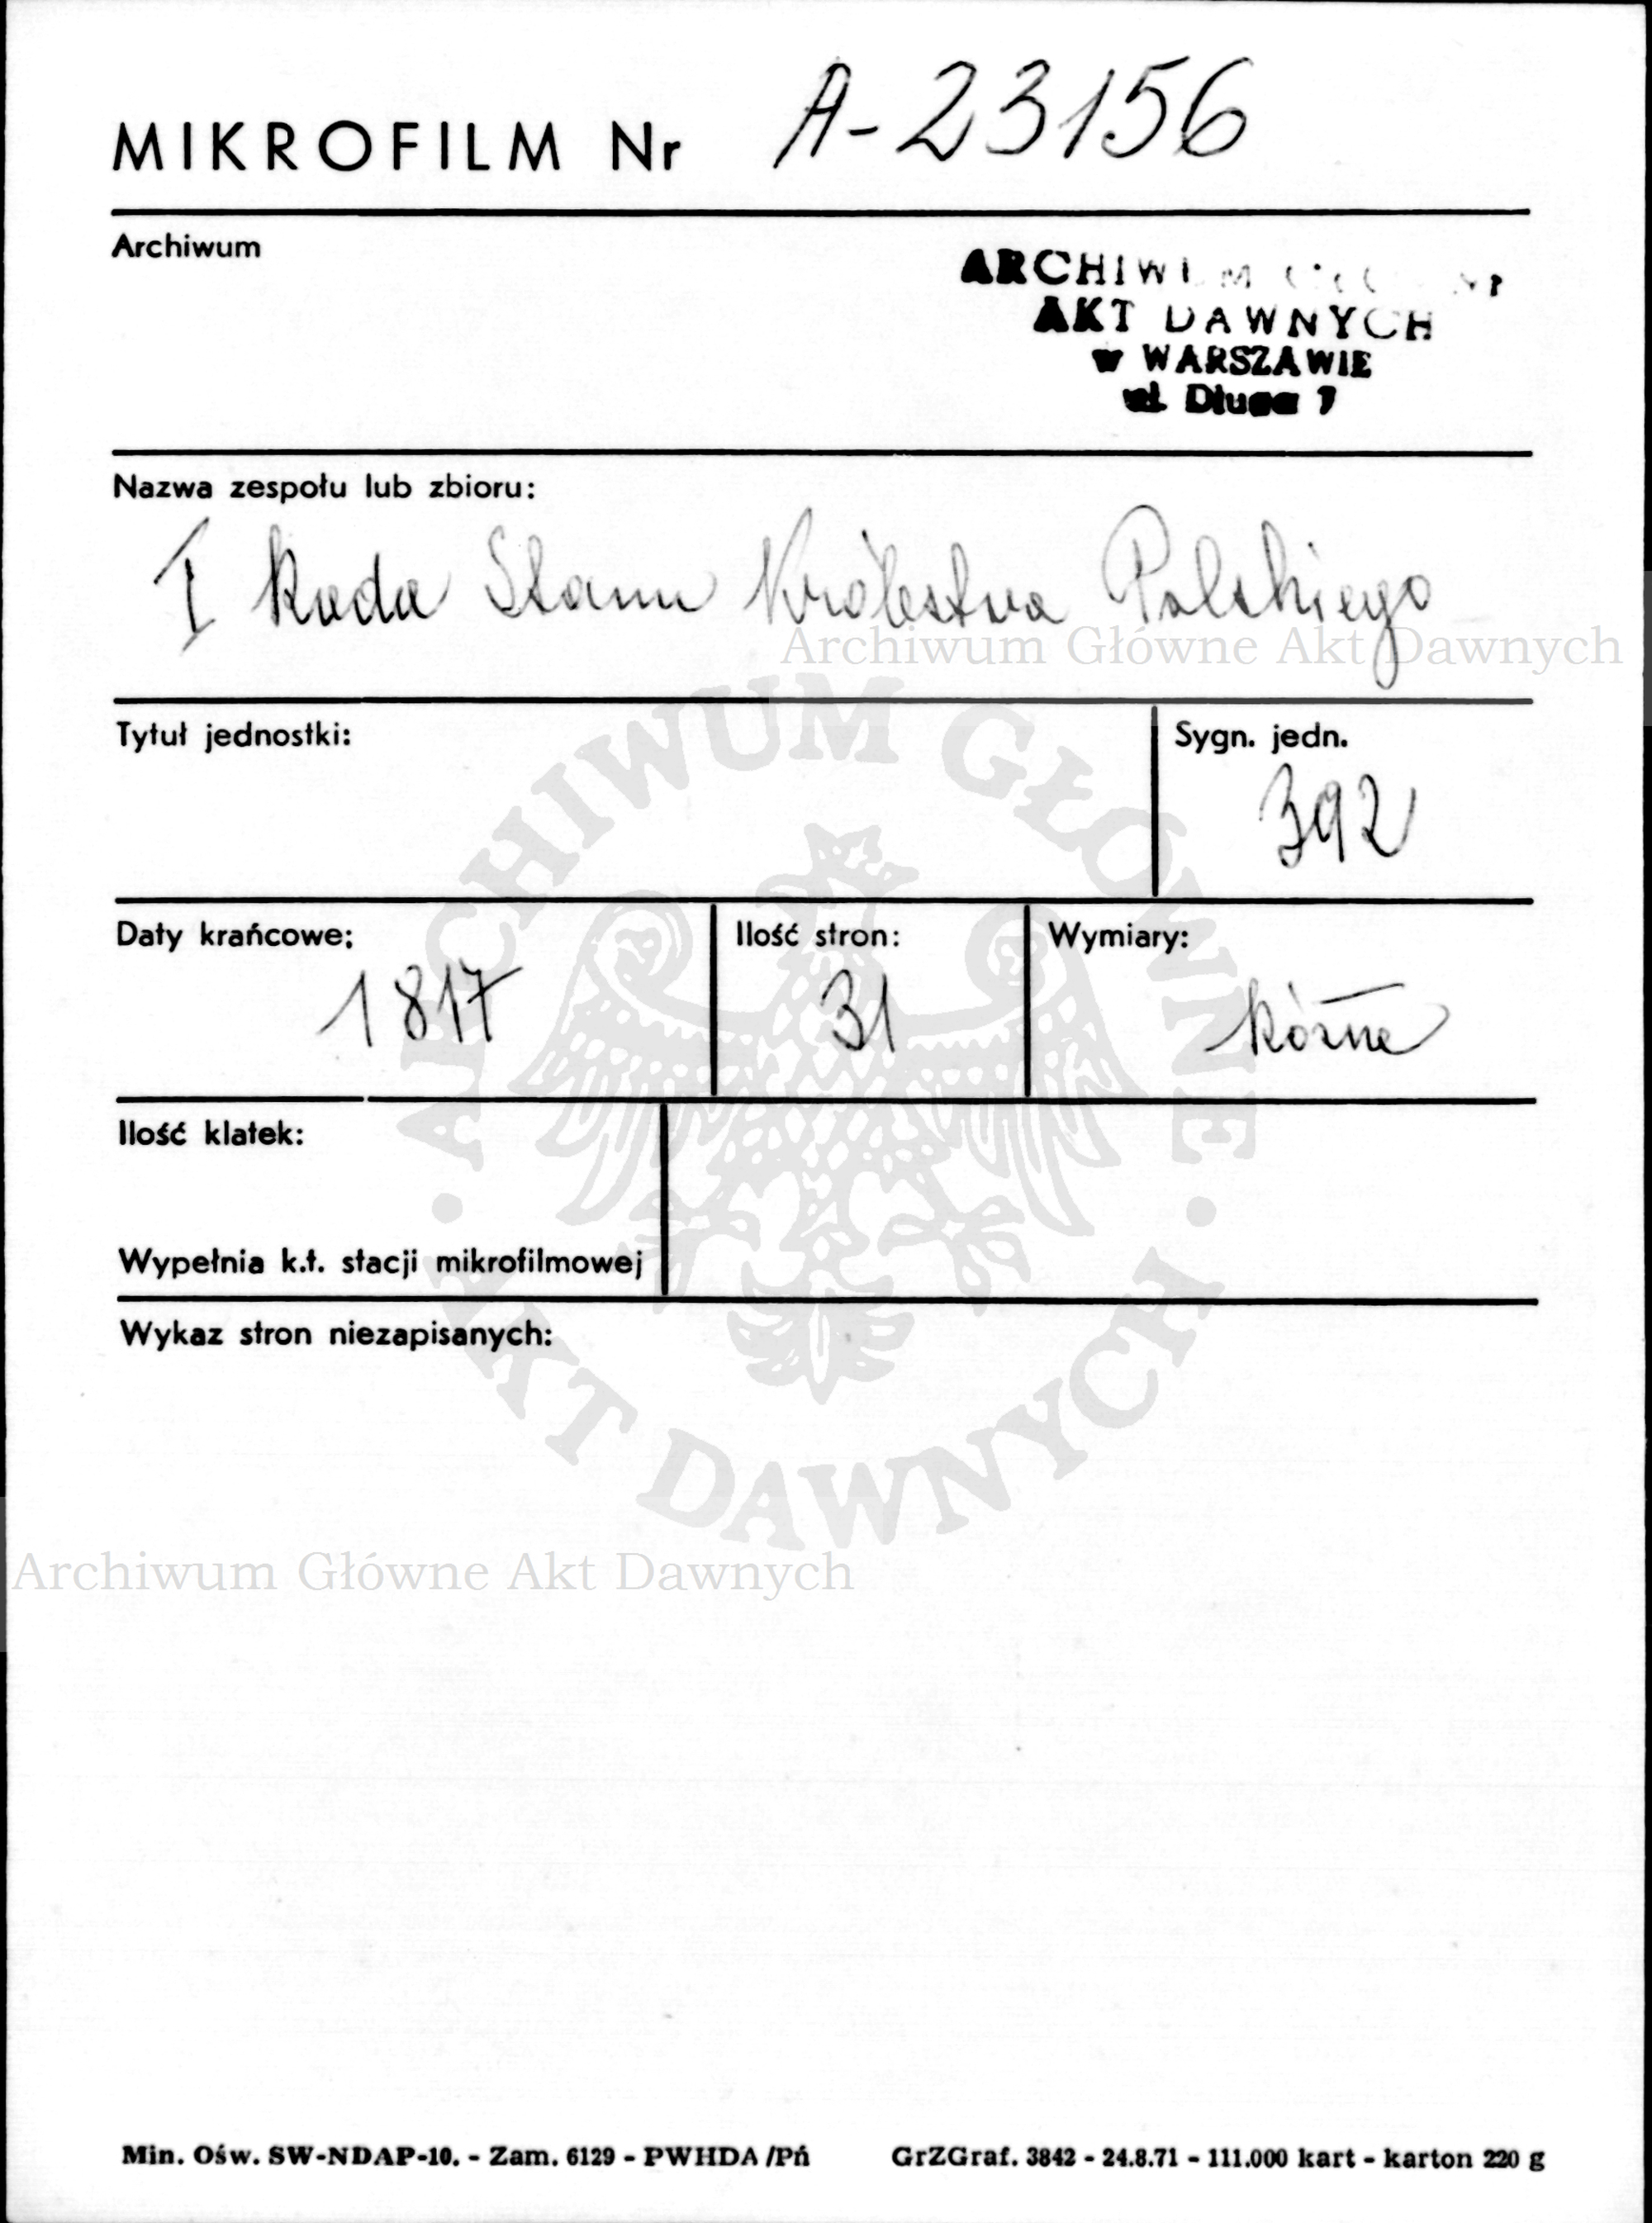 MIKROFILM Nr A-23156
Archiwum
AKT DAWNYCH
w WARSZAWIE
ul. Długa 7
Nazwa zespołu lub zbioru:
I Rada Stanu Królestwa Polskiego
Archiwum Główne Akt Dawnych
Tytuł jednostki:
Sygn. jedn.
392
ARCHIWUM GŁÓWNE
Daty krańcowe:
1817
Ilość stron:
31
Wymiary:
różne
Ilość klatek:
Wypełnia k.t. stacji mikrofilmowej
Wykaz stron niezapisanych:
AKT DAWNYCH
Archiwum Główne Akt Dawnych
Min. Ośw. SW-NDAP-10. - Zam. 6129 - PWHDA /Pń GrZGraf. 3842 - 24.8.71 - 111.000 kart - karton 220 g